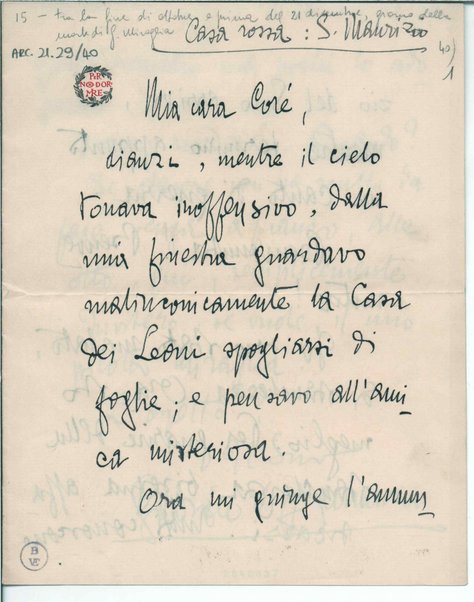 15 - tra la fine di ottobre e prima del 21 dicembre, giorno della
morte di G. Miraglia
ARC. 21.29/40
Casa rossa: S. Maurizio
40)
1
PER
NON DOR
MIRE
Mia cara Coré,
dianzi, mentre il cielo
tonava inoffensivo, dalla
mia finestra guardavo
malinconicamente la Casa
dei Leoni spogliarsi di
foglie; e pensavo all'ami
ca misteriosa.
Ora mi giunge l'annun
B
VE